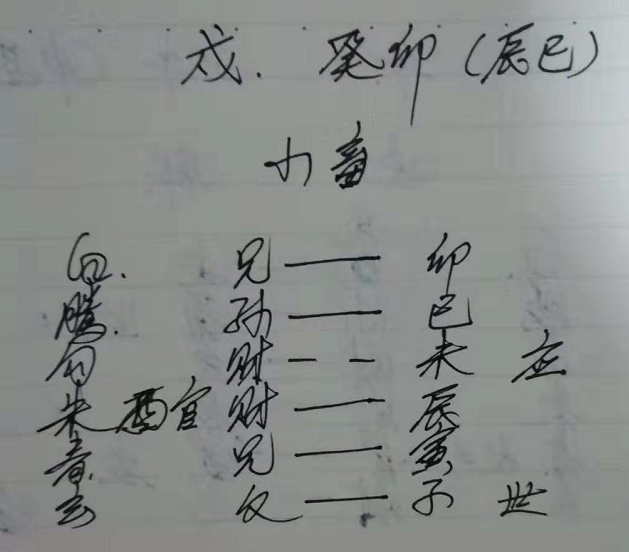 戌. 癸卯(辰巳)
小畜
白. 兄 卯
腾. 孙 巳
勾 财 未 应
朱 酉官 财 辰
青 兄 寅
玄 父 子 世